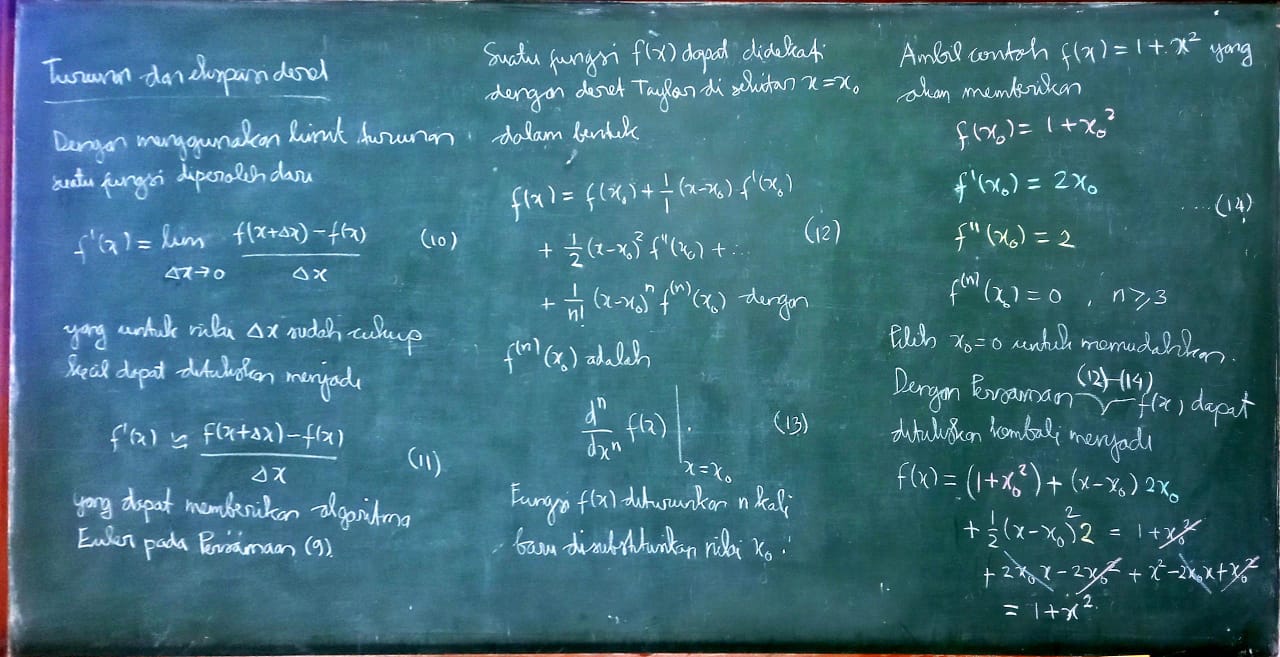 Turunan dan ekspansi deret
Dengan menggunakan limit turunan
suatu fungsi diperoleh dari
f'(x) = lim Δx→0 (f(x+Δx) − f(x)) / Δx (10)
yang untuk nilai Δx sudah cukup
kecil dapat dituliskan menjadi
f'(x) ≃ (f(x+Δx) − f(x)) / Δx (11)
yang dapat memberikan algoritma
Euler pada Persamaan (9).
Suatu fungsi f(x) dapat didekati
dengan deret Taylor di sekitar x = x₀
dalam bentuk
f(x) = f(x₀) + 1/1 (x−x₀) f'(x₀)
+ 1/2 (x−x₀)² f''(x₀) + ... (12)
+ 1/n! (x−x₀)ⁿ f⁽ⁿ⁾(x₀) dengan
f⁽ⁿ⁾(x₀) adalah
dⁿ/dxⁿ f(x) |ₓ₌ₓ₀ . (13)
Fungsi f(x) diturunkan n kali
baru disubstitusikan nilai x₀.
Ambil contoh f(x) = 1 + x² yang
akan memberikan
f(x₀) = 1 + x₀²
f'(x₀) = 2x₀
.... (14)
f''(x₀) = 2
f⁽ⁿ⁾(x₀) = 0 , n ≥ 3
Pilih x₀ = 0 untuk memudahkan.
Dengan Persamaan (12)-(14) f(x) dapat
dituliskan kembali menjadi
f(x) = (1+x₀²) + (x−x₀) 2x₀
+ 1/2 (x−x₀)² 2 = 1 + x₀²
+ 2x₀x − 2x₀² + x² − 2x₀x + x₀²
= 1 + x².